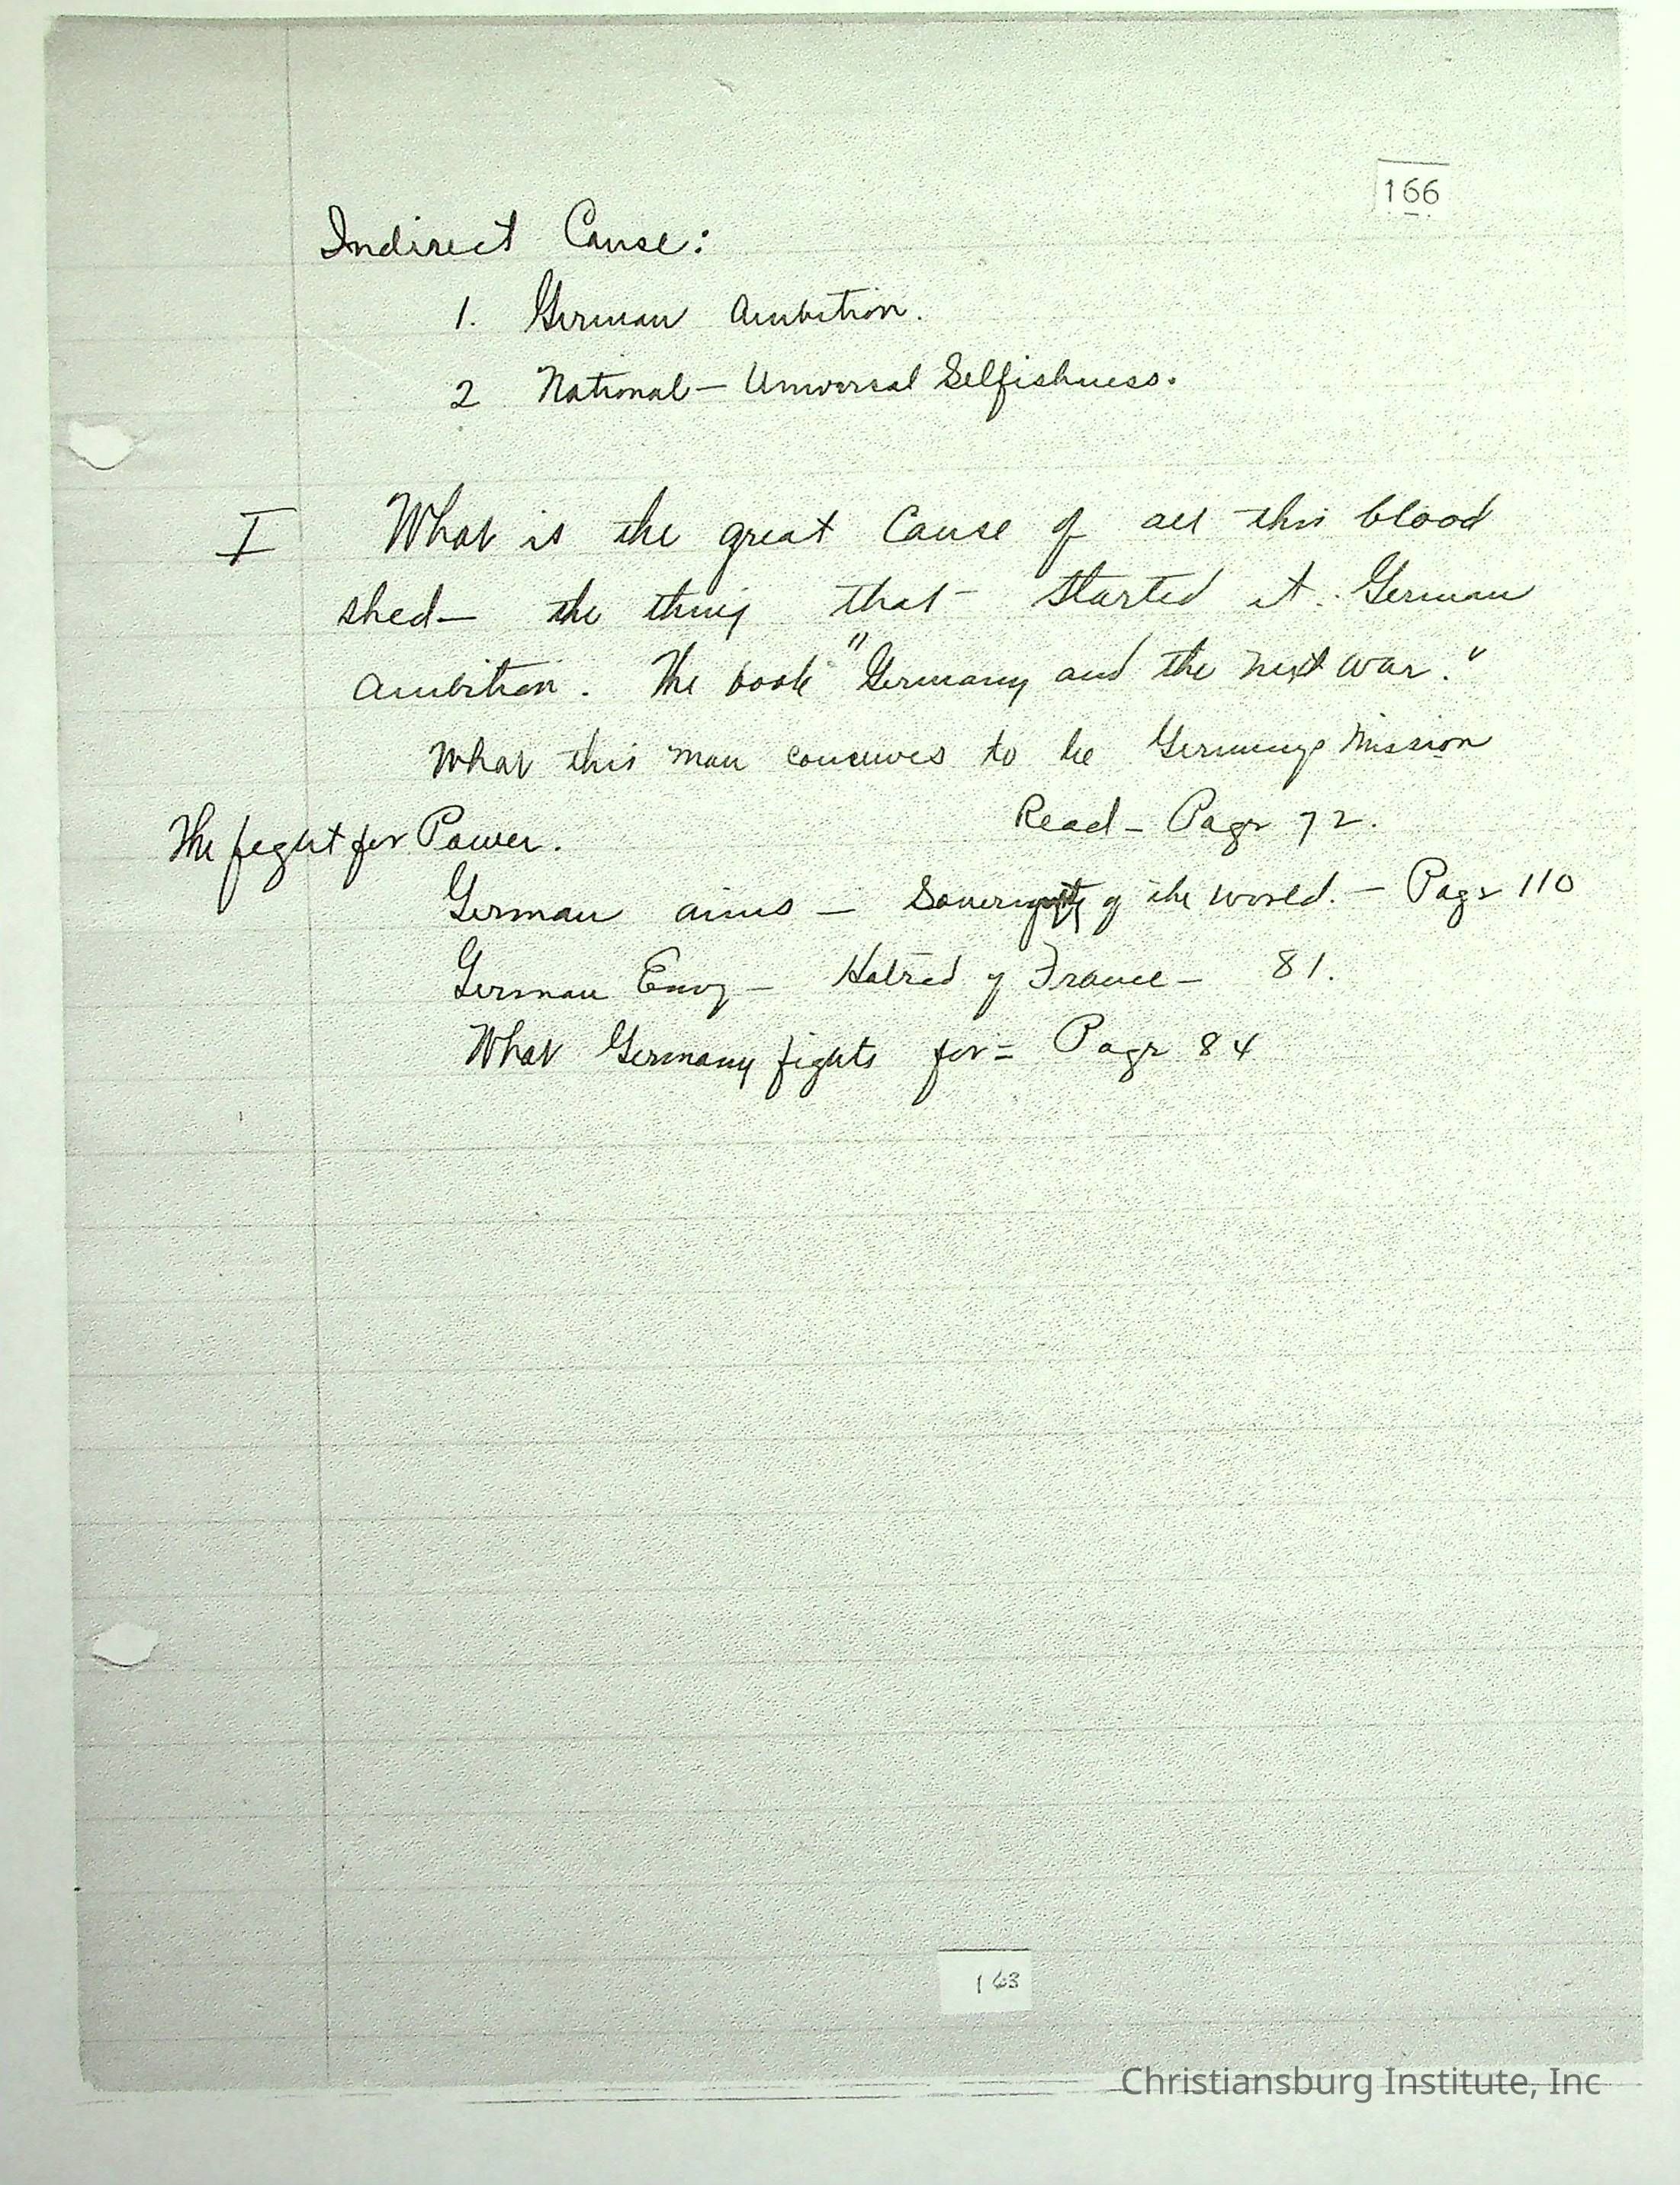 166
Indirect Cause:
1. German Ambition.
2 National — Universal Selfishness.
I What is the great Cause of all this blood
shed — the thing that - started it. German
Ambition. The book "Germany and the next war."
What this man conceives to be Germanys Mission
Read - Page 72.
The fight for Power.
German aims — Soverignty of the World. — Page 110
German Envy — Hatred of France — 81.
What Germany fights for = Page 84
163
Christiansburg Institute, Inc